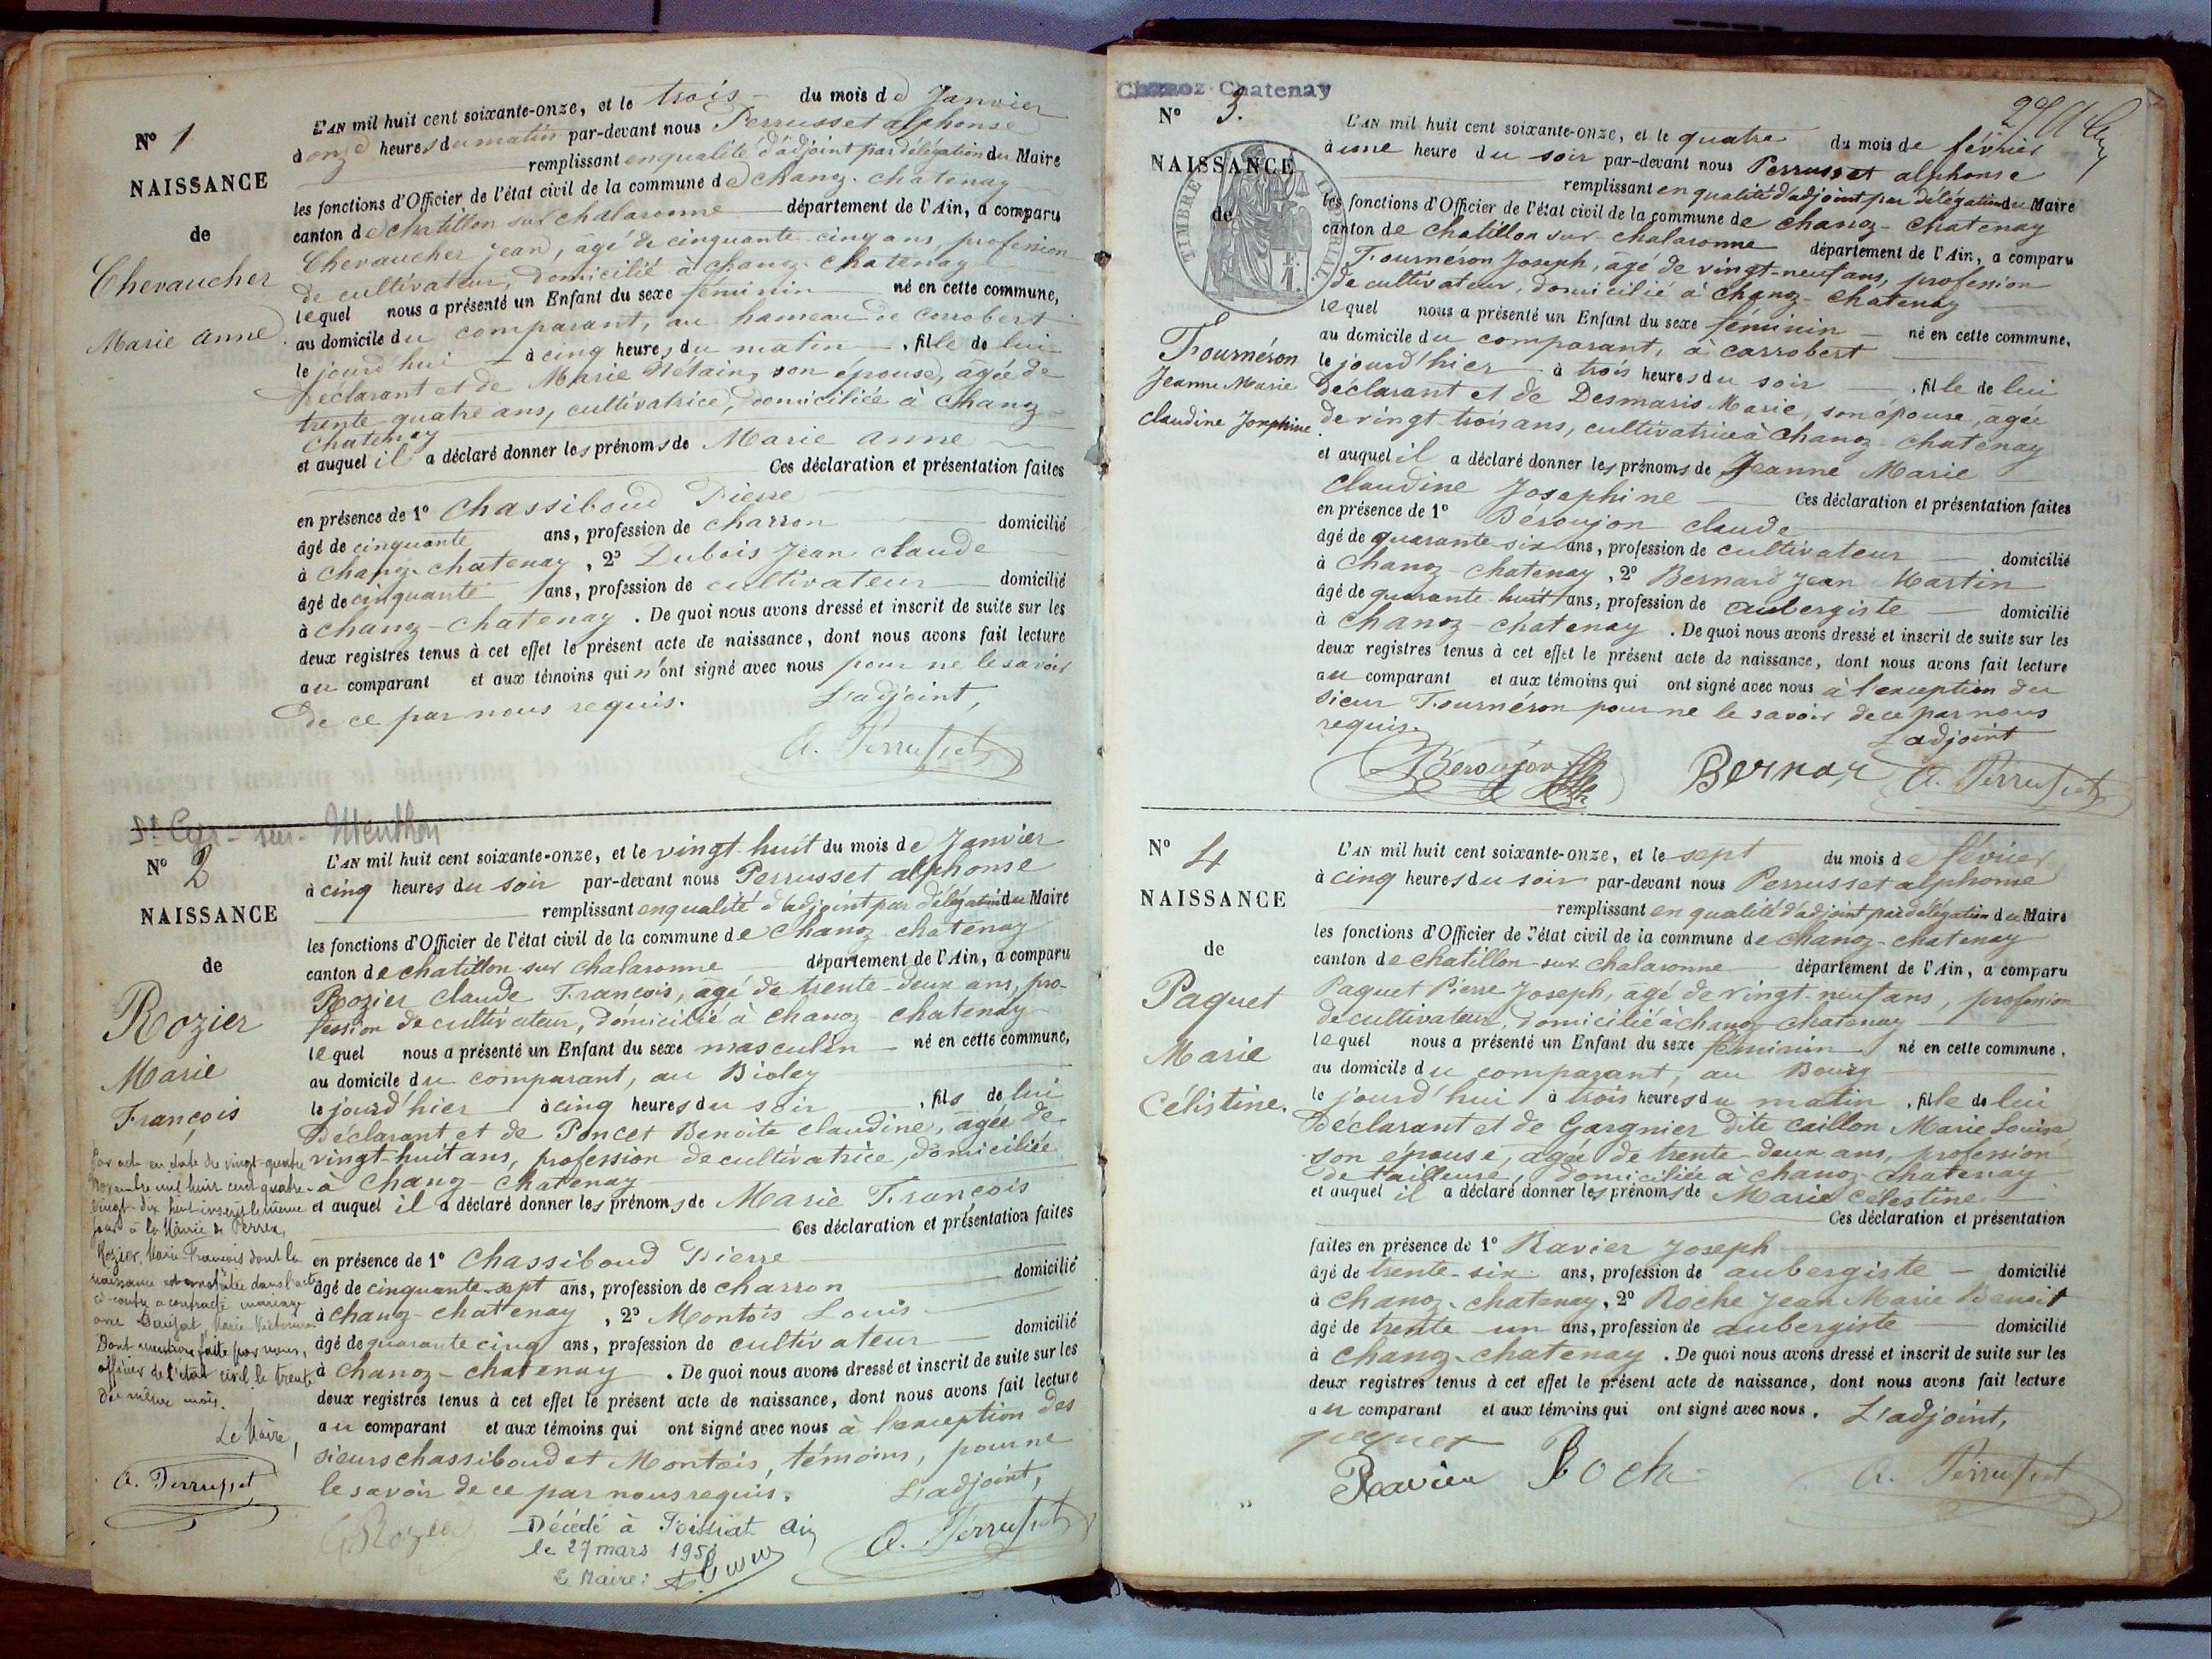 Nº 1
NAISSANCE
de
Chevaucher
Marie Anne
L'AN mil huit cent soixante-onze, et le trois du mois de Janvier
à onze heures du matin par-devant nous Perrusset alphonse
remplissant en qualité d'adjoint par délégation du Maire
les fonctions d'Officier de l'état civil de la commune de chanoz-chatenay
canton de chatillon sur chalaronne département de l'Ain, a comparu
Chevaucher jean, âgé de cinquante-cinq ans, profession
de cultivateur, domicilié à chanoz-chatenay
lequel nous a présenté un Enfant du sexe féminin né en cette commune,
au domicile du comparant, au hameau de Corrobert
le jourd'hui à cinq heures du matin, fille de lui
Déclarant et de Marie Nétain, son épouse, agée de
trente quatre ans, cultivatrice, domiciliée à chanoz-
Chatenay
et auquel il a déclaré donner les prénoms de Marie anne
Ces déclaration et présentation faites
en présence de 1º Chassiboud Pierre
âgé de cinquante ans, profession de charron domicilié
à chanoz-chatenay, 2º Dubois Jean claude
âgé de cinquante ans, profession de cultivateur domicilié
à chanoz-chatenay. De quoi nous avons dressé et inscrit de suite sur les
deux registres tenus à cet effet le présent acte de naissance, dont nous avons fait lecture
au comparant et aux témoins qui n'ont signé avec nous pour ne le savoir
de ce par nous requis. L'adjoint,
A. Perrusset
St Cyr-sur-Menthon
Nº 2
NAISSANCE
de
Rozier
Marie
François
L'AN mil huit cent soixante-onze, et le vingt-huit du mois de Janvier
à cinq heures du soir par-devant nous Perrusset alphonse
remplissant en qualité d'adjoint par délégation du Maire
les fonctions d'Officier de l'état civil de la commune de Chanoz-chatenay
canton de chatillon-sur chalaronne département de l'Ain, a comparu
Rozier claude François, agé de trente-deux ans, pro-
fession de cultivateur, domicilié à chanoz-chatenay
lequel nous a présenté un Enfant du sexe masculin né en cette commune,
au domicile du comparant, au Biolay
le jourd'hier à cinq heures du soir, fils de lui
Déclarant et de Poncet Benoite claudine, agée de
vingt-huit ans, profession de cultivatrice, domiciliée
à Chanoz-chatenay
et auquel il a déclaré donner les prénoms de Marie François
Ces déclaration et présentation faites
en présence de 1º Chassiboud Pierre
âgé de cinquante-sept ans, profession de charron domicilié
à chanoz-chatenay, 2º Montois Louis
âgé de quarante cinq ans, profession de cultivateur domicilié
à Chanoz-chatenay. De quoi nous avons dressé et inscrit de suite sur les
deux registres tenus à cet effet le présent acte de naissance, dont nous avons fait lecture
au comparant et aux témoins qui ont signé avec nous à l'exception des
sieurs chassiboud et Montois, témoins, pour ne
le savoir de ce par nous requis. L'adjoint,
Rozier
A. Perrusset
Par acte en date du vingt-quatre
Novembre mil huit cent quatre-
vingt-dix huit inscrit le même
jour à la Mairie de Perrex,
Rozier, Marie-François dont la
naissance est constatée dans l'acte
ci-contre a contracté mariage
avec Marie Victorine
Dont mention faite par nous,
officier de l'état civil le trente
du même mois.
Le Maire,
A. Perrusset
Décédé à Foissiat Ain
le 27 mars 195
Le Maire:
Chanoz-Chatenay
Nº 3.
NAISSANCE
de
TIMBRE IMPERIAL
Fournéron
Jeanne Marie
Claudine Josephine
L'AN mil huit cent soixante-onze, et le quatre du mois de février
à une heure du soir par-devant nous Perrusset alphonse
remplissant en qualité d'adjoint par délégation du Maire
les fonctions d'Officier de l'état civil de la commune de chanoz-chatenay
canton de chatillon sur-chalaronne département de l'Ain, a comparu
Fourneron Joseph, âgé de vingt-neuf ans, profession
de cultivateur, domicilié à chanoz-chatenay
lequel nous a présenté un Enfant du sexe féminin né en cette commune,
au domicile du comparant, à carrobert
le jourd'hier à trois heures du soir, fille de lui
déclarant et de Desmaris Marie, son épouse, agée
de vingt-trois ans, cultivatrice à chanoz-chatenay
et auquel il a déclaré donner les prénoms de Jeanne Marie
Claudine Josephine Ces déclaration et présentation faites
en présence de 1º Béroujon claude
âgé de quarante-six ans, profession de cultivateur domicilié
à Chanoz-chatenay, 2º Bernard Jean Martin
âgé de quarante-huit ans, profession de aubergiste domicilié
à Chanoz-chatenay. De quoi nous avons dressé et inscrit de suite sur les
deux registres tenus à cet effet le présent acte de naissance, dont nous avons fait lecture
au comparant et aux témoins qui ont signé avec nous à l'exception du
sieur Fournéron pour ne le savoir de ce par nous
requis. L'adjoint
Béroujon Bernar A. Perrusset
Nº 4
NAISSANCE
de
Paquet
Marie
Célistine.
L'AN mil huit cent soixante-onze, et le sept du mois de février
à cinq heures du soir par-devant nous Perrusset alphonse
remplissant en qualité d'adjoint par délégation du Maire
les fonctions d'Officier de l'état civil de la commune de chanoz-chatenay
canton de chatillon-sur chalaronne département de l'Ain, a comparu
Paquet Pierre Joseph, âgé de vingt-neuf ans, profession
de cultivateur, domicilié à chanoz-chatenay
lequel nous a présenté un Enfant du sexe féminin né en cette commune,
au domicile du comparant, au Bourg
le jourd'hui à trois heures du matin, fille de lui
Déclarant et de Gargnier dite caillon Marie Louise
son épouse, agée de trente-deux ans, profession
de tailleuse, domiciliée à chanoz-chatenay
et auquel il a déclaré donner les prénoms de Marie Célestine
Ces déclaration et présentation
faites en présence de 1º Ravier Joseph
âgé de trente-six ans, profession de aubergiste domicilié
à Chanoz-chatenay, 2º Roche Jean Marie Benoit
âgé de trente-un ans, profession de aubergiste domicilié
à Chanoz-chatenay. De quoi nous avons dressé et inscrit de suite sur les
deux registres tenus à cet effet le présent acte de naissance, dont nous avons fait lecture
au comparant et aux témoins qui ont signé avec nous. L'adjoint,
paquet
Ravier Roche A. Perrusset